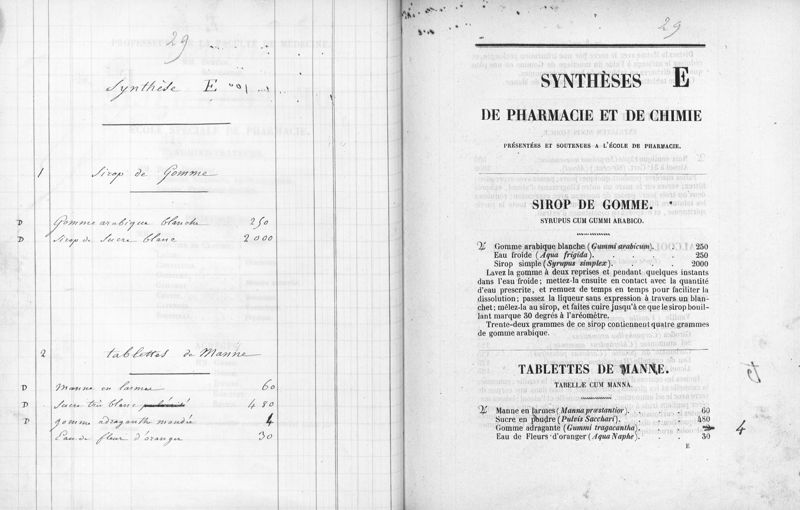 29
Synthèse E
1 Sirop de Gomme
D Gomme arabique blanche 250
D Sirop de Sucre blanc 2000
2 tablettes de Manne
D Manne en larmes 60
D Sucre très blanc 480
D gomme adraganthe mondée 4
Eau de fleur d'oranger 30
29
SYNTHÈSES E
DE PHARMACIE ET DE CHIMIE
PRÉSENTÉES ET SOUTENUES A L'ÉCOLE DE PHARMACIE.
SIROP DE GOMME.
SYRUPUS CUM GUMMI ARABICO.
Gomme arabique blanche (Gummi arabicum). . 250
Eau froide (Aqua frigida) . . . . 250
Sirop simple (Syrupus simplex) . . . . 2000
Lavez la gomme à deux reprises et pendant quelques instants
dans l'eau froide; mettez-la ensuite en contact avec la quantité
d'eau prescrite, et remuez de temps en temps pour faciliter la
dissolution; passez la liqueur sans expression à travers un blan-
chet; mêlez-la au sirop, et faites cuire jusqu'à ce que le sirop bouil-
lant marque 30 degrés à l'aréomètre.
Trente-deux grammes de ce sirop contiennent quatre grammes
de gomme arabique.
TABLETTES DE MANNE.
TABELLÆ CUM MANNA.
Manne en larmes (Manna præstantior) . . . 60
Sucre en poudre (Pulvis Sacchari) . . . . 480
Gomme adragante (Gummi tragacantha) . . . 4
Eau de Fleurs d'oranger (Aqua Naphe) . . . 30
E